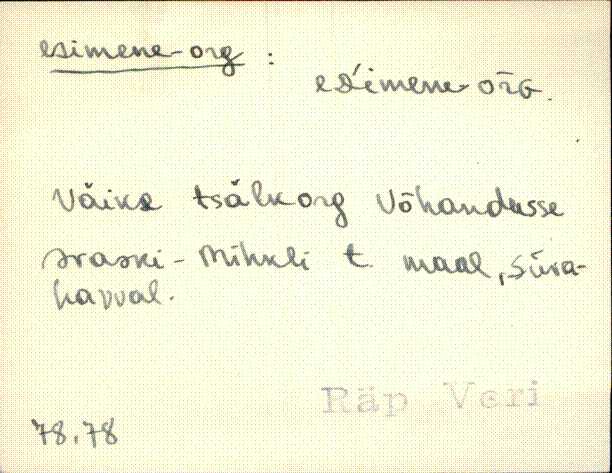 esimene-org :
es'imene-õrG.
Väike tsälkorg Võhandusse
-Mihkli t. maal, Süva-
havval.
Räp Veri
78.78